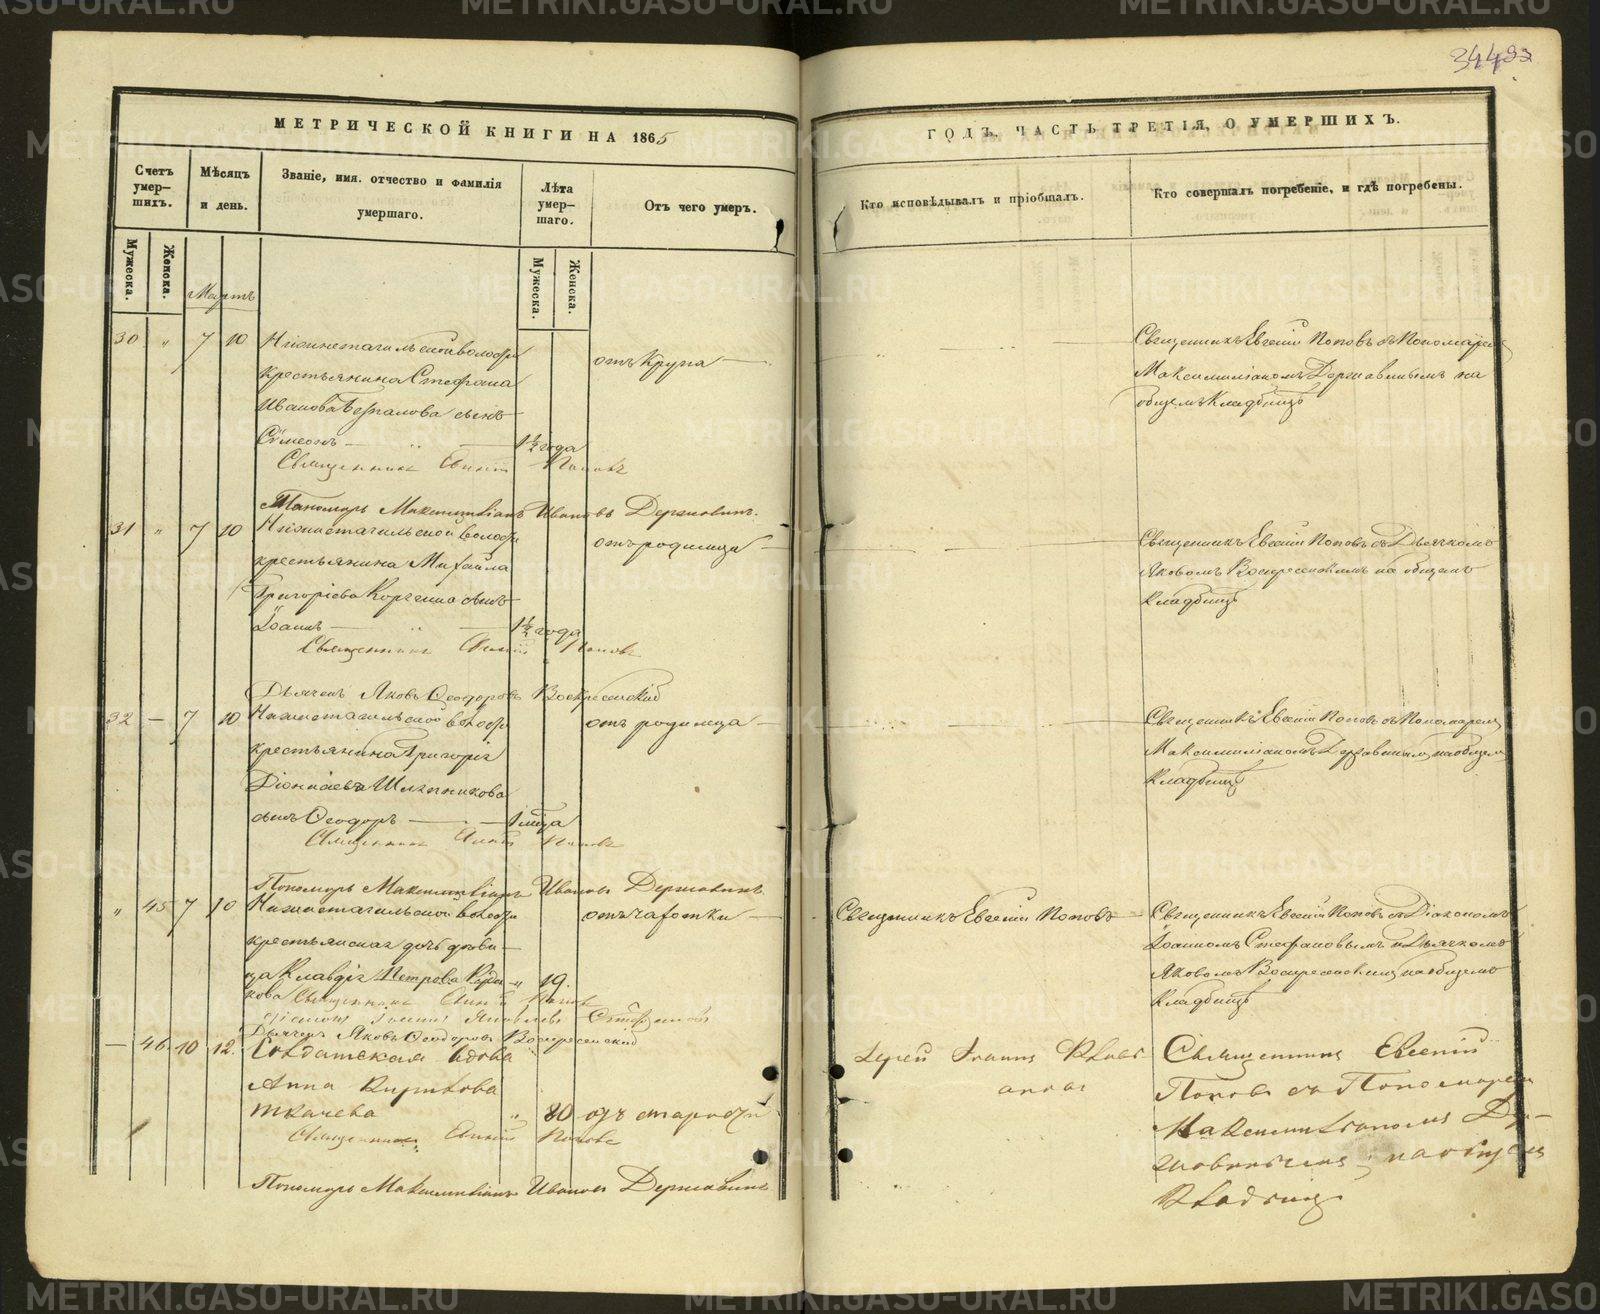 34493
МЕТРИЧЕСКОЙ КНИГИ НА 1865
ГОДЪ, ЧАСТЬ ТРЕТІЯ, О УМЕРШИХЪ.
Счетъ умер-шихъ.
Мѣсяцъ и день.
Званіе, имя. отчество и фамилія умершаго.
Лѣта умер-шаго.
Отъ чего умеръ.
Кто исповѣдывалъ и пріобщалъ.
Кто совершалъ погребеніе, и гдѣ погребены.
Мужеска.
Женска.
Мужеска.
Женска.
Мартъ
30 " 7 10 Нижнетагильской волости
крестьянина Стефана
Иванова сынъ
Симеонъ — 1½ года
отъ крупа
Священникъ Евгеній Поповъ съ Пономаремъ
Максимиліаномъ Державинымъ на
общемъ кладбищѣ
Священникъ Евгеній Поповъ
Пономарь Максимиліанъ Ивановъ Державинъ.
31 " 7 10 Нижнетагильской волости
крестьянина Михаила
Григоріева сынъ
Іоаннъ — 1½ года
отъ родимца
Священникъ Евгеній Поповъ съ Дьячкомъ
Яковомъ Воскресенскимъ на общемъ
кладбищѣ
Священникъ Евгеній Поповъ
Дьячекъ Яковъ Ѳеодоровъ Воскресенскій
32 — 7 10 Нижнетагильской волости
крестьянина Григорія
Діонисіева Шляпникова
сынъ Ѳеодоръ — 1 мѣсца
отъ родимца
Священникъ Евгеній Поповъ съ Пономаремъ
Максимиліаномъ Державинымъ на общемъ
кладбищѣ
Священникъ Евгеній Поповъ
Пономарь Максимиліанъ Ивановъ Державинъ
" 45 7 10 Нижнетагильской волости
крестьянская дочь дѣви-
ца Клавдія Петрова
19.
отъ чахотки
Священникъ Евгеній Поповъ
Священникъ Евгеній Поповъ съ Діакономъ
Іоанномъ Стефановымъ и Дьячкомъ
Яковомъ Воскресенскимъ на общемъ
кладбищѣ
Священникъ Евгеній Поповъ
Діаконъ Іоаннъ Яковлевъ Стефановъ
Дьячекъ Яковъ Ѳеодоровъ Воскресенскій
— 46 10 12. Солдатская вдова
Анна Кирилова
Ткачева " 80 отъ старости
Іерей Іоаннъ
Священникъ Евгеній
Поповъ съ Пономаремъ
Максимиліаномъ Дер-
жавинымъ, на общемъ
кладбищѣ
Священникъ Евгеній Поповъ
Пономарь Максимиліанъ Ивановъ Державинъ
METRIKI.GASO-URAL.RU